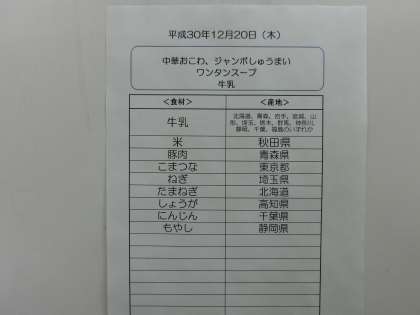 平成30年12月20日（木）
中華おこわ、ジャンボしゅうまい
ワンタンスープ
牛乳
＜食材＞ ＜産地＞
牛乳 北海道、青森、岩手、宮城、山
形、埼玉、栃木、群馬、神奈川、
静岡、千葉、福島のいずれか
米 秋田県
豚肉 青森県
こまつな 東京都
ねぎ 埼玉県
たまねぎ 北海道
しょうが 高知県
にんじん 千葉県
もやし 静岡県